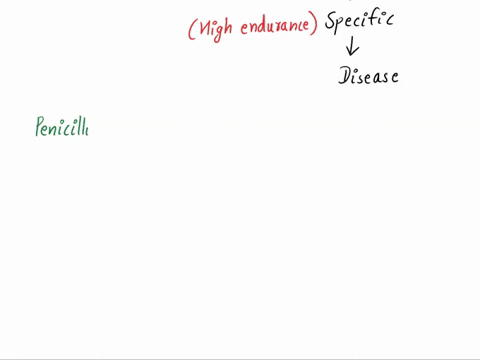 (High endurance) Specific
↓
Disease
Penicill